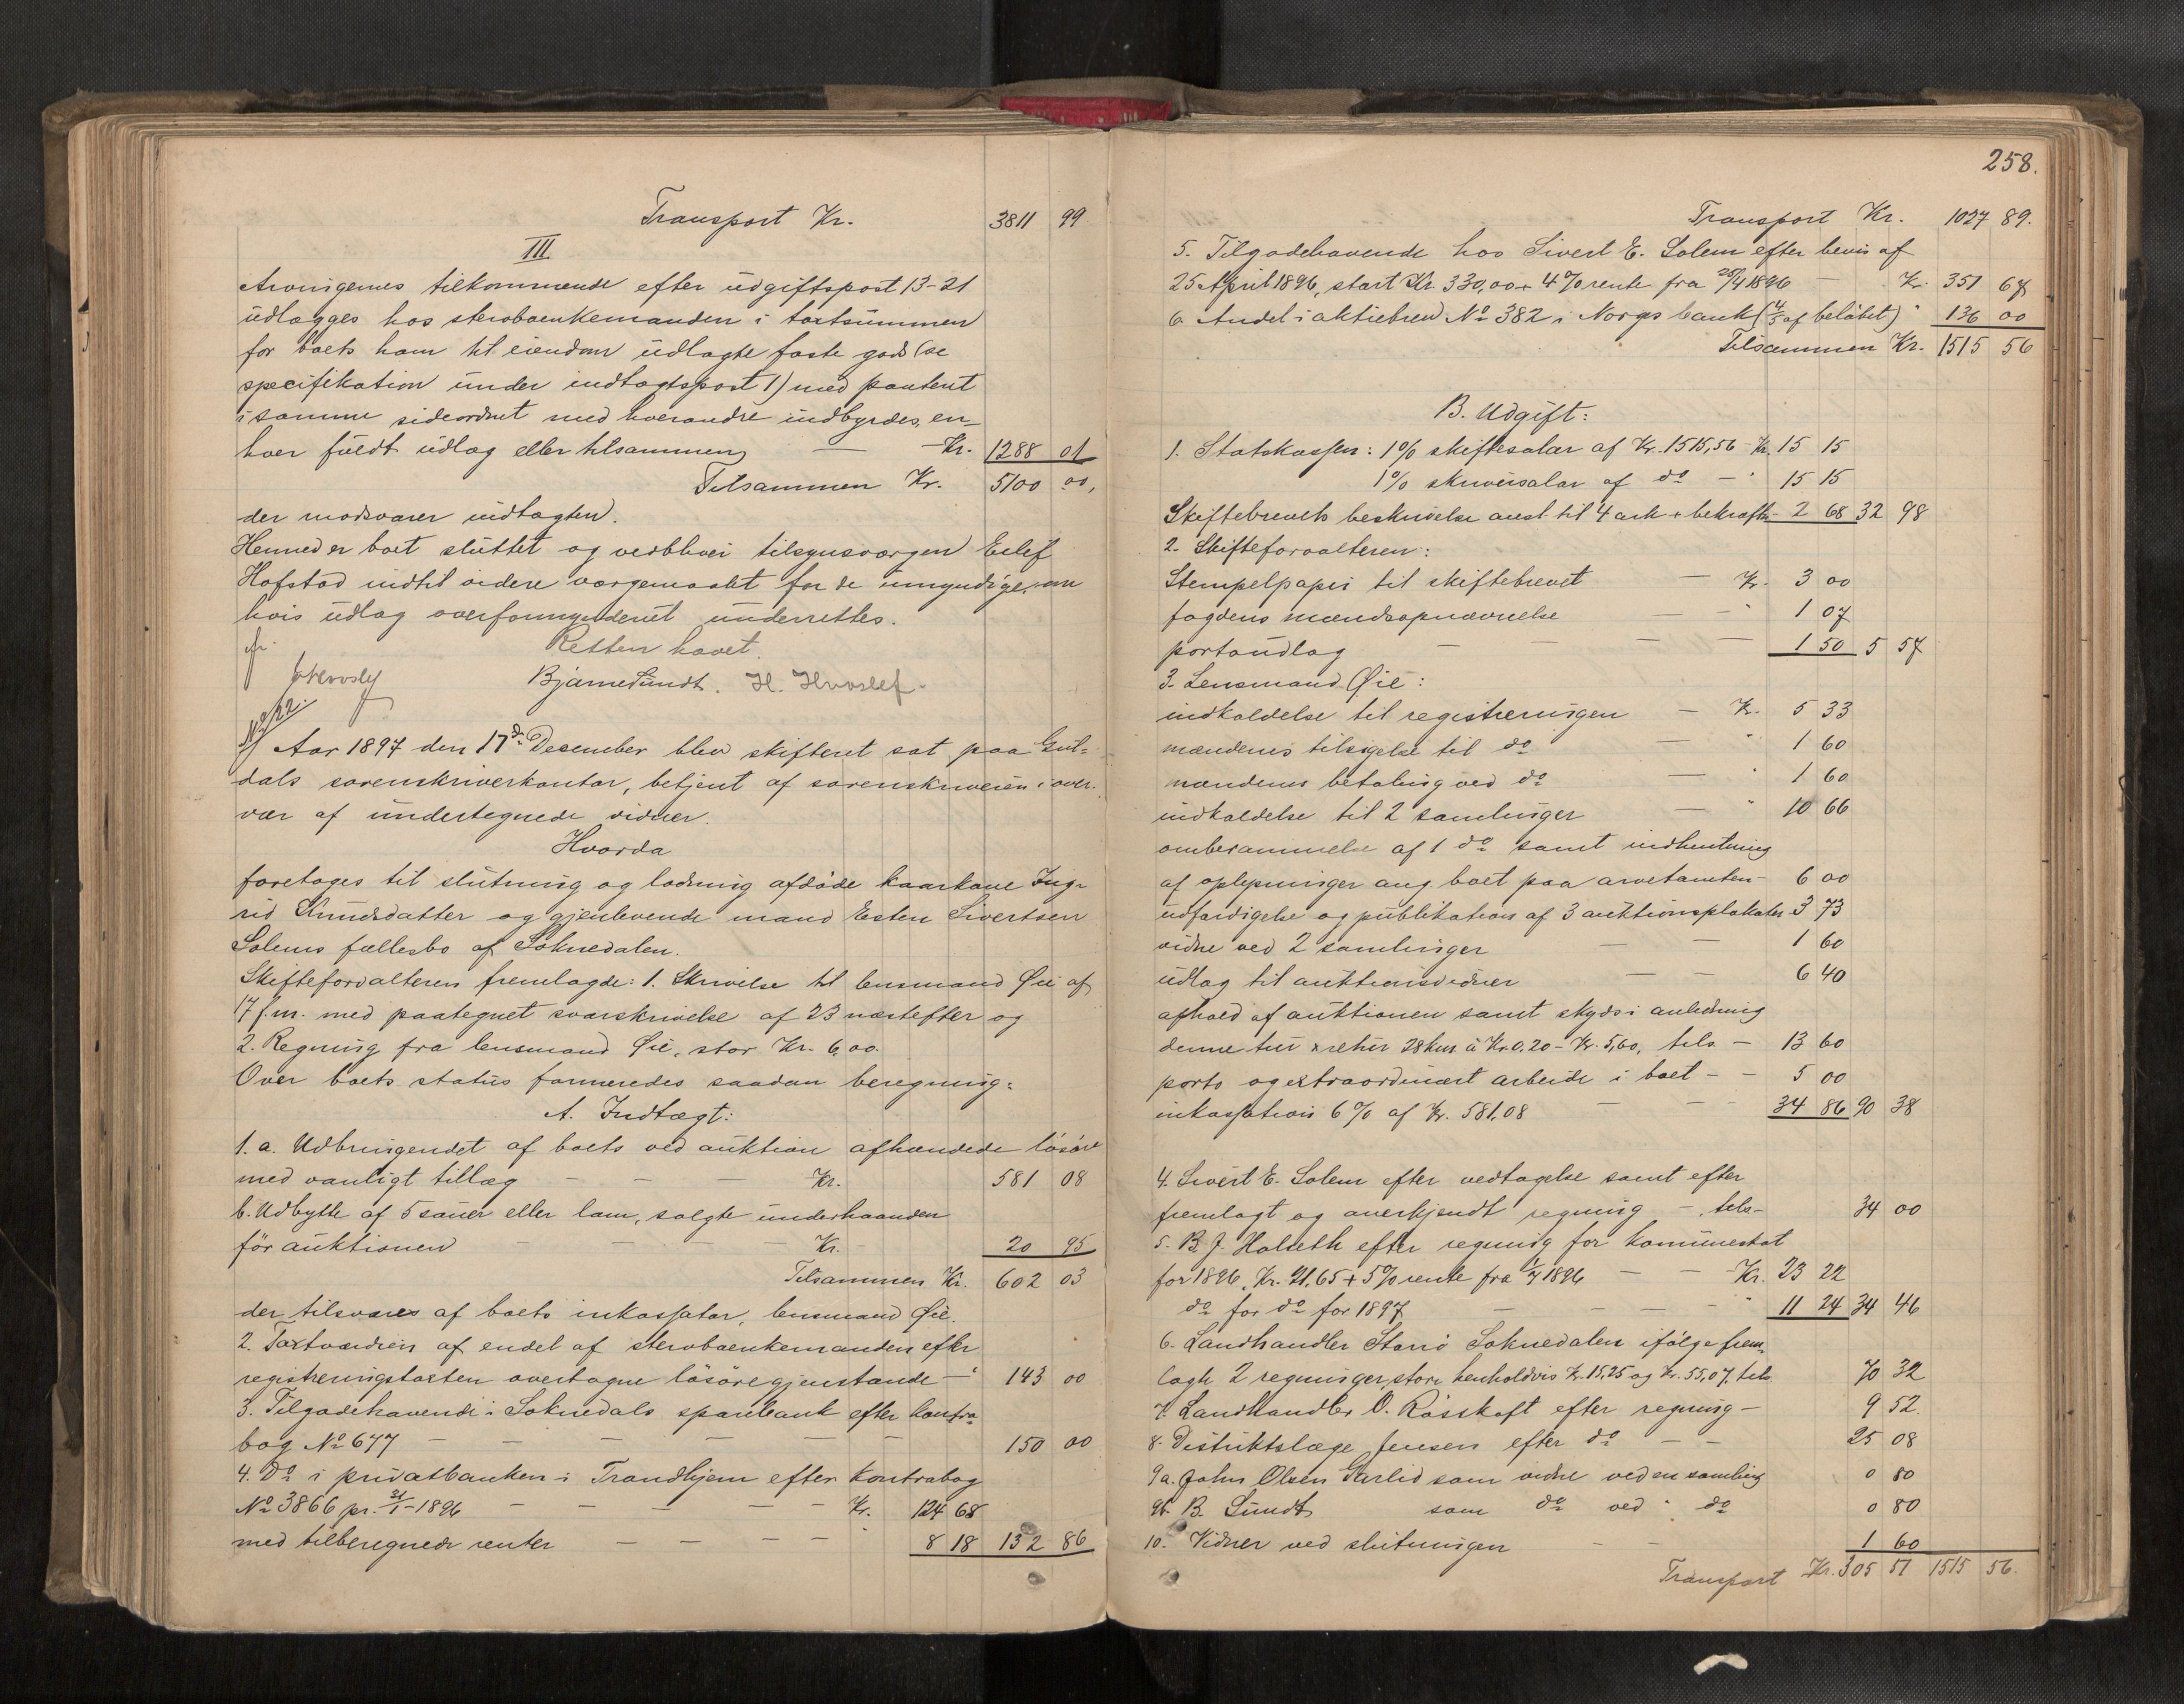 Transport Kr. 3811 99
III
Arvingernes tilkommende efter udgiftspost 13-21
udlægges hos sterboenkemanden i taxtsummen
for boets ham til eiendom udlagte faste gods (se
specifikation under indtægtspost 1) med panteret
i samme sideordnet med hverandre indbyrdes, en-
hver fuldt udlæg eller tilsammen — - Kr. 1288 01
Tilsammen Kr. 5100 00,
der modsvarer indtægten.
Hermed er boet sluttet og vedbliver tilsynsværgen Eilif
Hofstad indtil videre værgemaalet for de umyndige, om
hvis udlæg overformynderiet underrettes.
Retten hævet.
Bjarne Sundt. H. Hvoslef.
Aar 1897 den 17de December blev skifteret sat paa Gul-
dals sorenskriverkontor, betjent af sorenskriveren i over-
vær af undertegnede vidner.
Hvorda
foretoges til slutning og lodning afdøde kaarkone Ing-
rid Knudsdatter og gjenlevende mand Esten Sivertsen
Solems fællesbo af Soknedalen.
Skifteforvalteren fremlagde: 1. Skrivelse til lensmand Øie af
17 f.m. med paategnet svarskrivelse af 23 næstefter og
2. Regning fra lensmand Øie, stor Kr. 6,00.
Over boets status formeredes saadan beregning:
A. Indtægt:
1. a. Udbringendet af boets ved auktion afhændede løsøre
med vanligt tillæg - - - Kr. 581 08
b. Udbytte af 5 sauer eller lam, solgte underhaanden
før auktionen - - - - Kr. 20 95
Tilsammen Kr. 602 03
der tilsvares af boets inkassator, lensmand Øie.
2. Taxtværdien af endel af sterboenkemanden efter
registreringstaxten overtagne løsøregjenstande - " 143 00
3. Tilgodehavende i Soknedals sparebank efter kontra-
bog No 677 - - - - - - 150 00
4. Do i privatbanken i Trondhjem efter kontrabog
No 3866 pr. 31/1-1896 - - - - - Kr. 124 68
med tilberegnede renter - - - - " 8 18 132 86
258.
Transport Kr. 1027 89.
5. Tilgodehavende hos Sivert E. Solem efter bevis af
25 April 1896, stort Kr 330,00 + 4% rente fra 25/4 1896 - Kr. 351 67
6. Andel i aktiebrev No 382 i Norges bank (4/5 af beløbet) " 136 00
Tilsammen Kr. 1515 56
B. Udgift:
1. Statskassen: 1% skiftesalær af Kr. 1515,56 - Kr. 15 15
1% skriversalær af do - " 15 15
Skiftebrevets beskrivelse ansl. til 4 ark + bekræftn - 2 68 32 98
2. Skifteforvalteren:
Stempelpapir til skiftebrevet - Kr. 3 00
fogdens mændsopnævnelse - - " 1 07
portoudlæg - - - - 1 50 5 57
3. Lensmand Øie:
indkaldelse til registreringen - Kr. 5 33
mændenes tilsigelse til do - " 1 60
mændenes betaling ved do - " 1 60
indkaldelse til 2 samlinger - " 10 66
omberammelse af 1 do samt indhentning
af oplysninger ang boet paa arvetomten - 6 00
udfærdigelse og publikation af 3 auktionsplakater 3 73
vidne ved 2 samlinger - - 1 60
udlæg til auktionsvidner - - 6 40
afhold af auktionen samt skyds i anledning
denne tur & retur 28 km à Kr. 0,20 - Kr. 5,60, tils. - 13 60
porto og extraordinært arbeide i boet - - 5 00
inkassation 6% af Kr. 581,08 - - - 34 86 90 38
4. Sivert E. Solem efter vedtagelse samt efter
fremlagt og anerkjendt regning - , tils- 34 00
5. B. J. Halseth efter regning for kommuneskat
for 1896, Kr. 21,65 + 5% rente fra 1/7 1896 - - Kr. 23 22
do for do for 1897 - - - - " 11 24 34 46
6. Landhandler Storrø Soknedalen ifølge frem-
lagte 2 regninger, store henholdsvis Kr. 15,25 og Kr. 55,07, tils 70 32
7. Landhandler O. Rosskoft efter regning - 9 52.
8. Distriktslæge Jensen efter do - - 25 08
9a. John Olsen Garlid som vidne ved en samling 0 80
9b. B. Sundt som do ved " do 0 80
10. Vidner ved slutningen - - 1 60
Transport Kr. 305 51 1515 56.